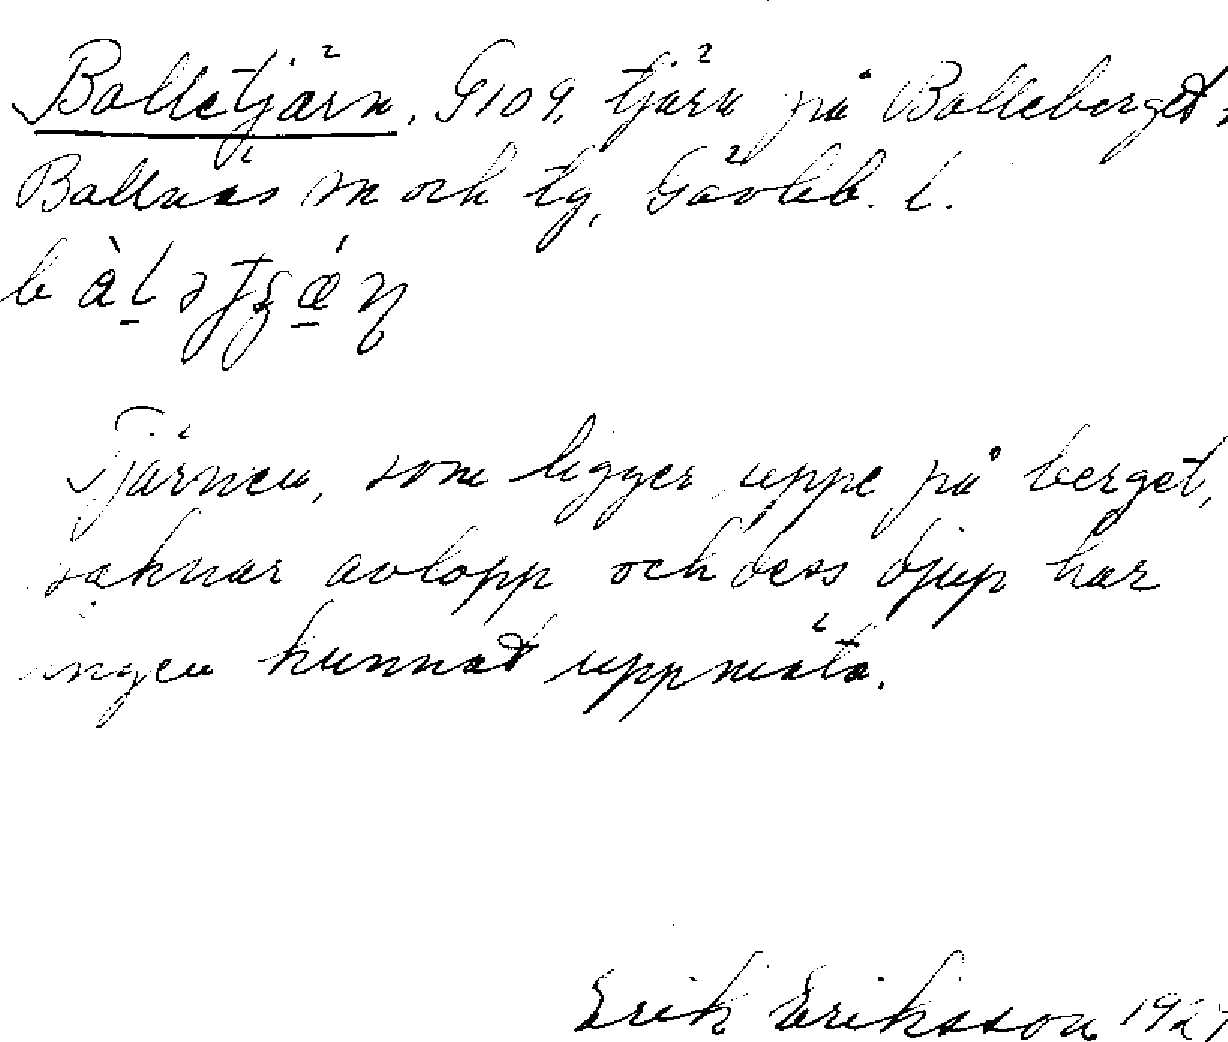 Balletjärn. G109, tjärn på Balleberget,
Bollnäs sn och tg, Gävleb. l.
Tjärnen, som ligger uppe på berget,
saknar avlopp och dess djup har
ingen kunnat uppmäta.
Erik Eriksson 1927